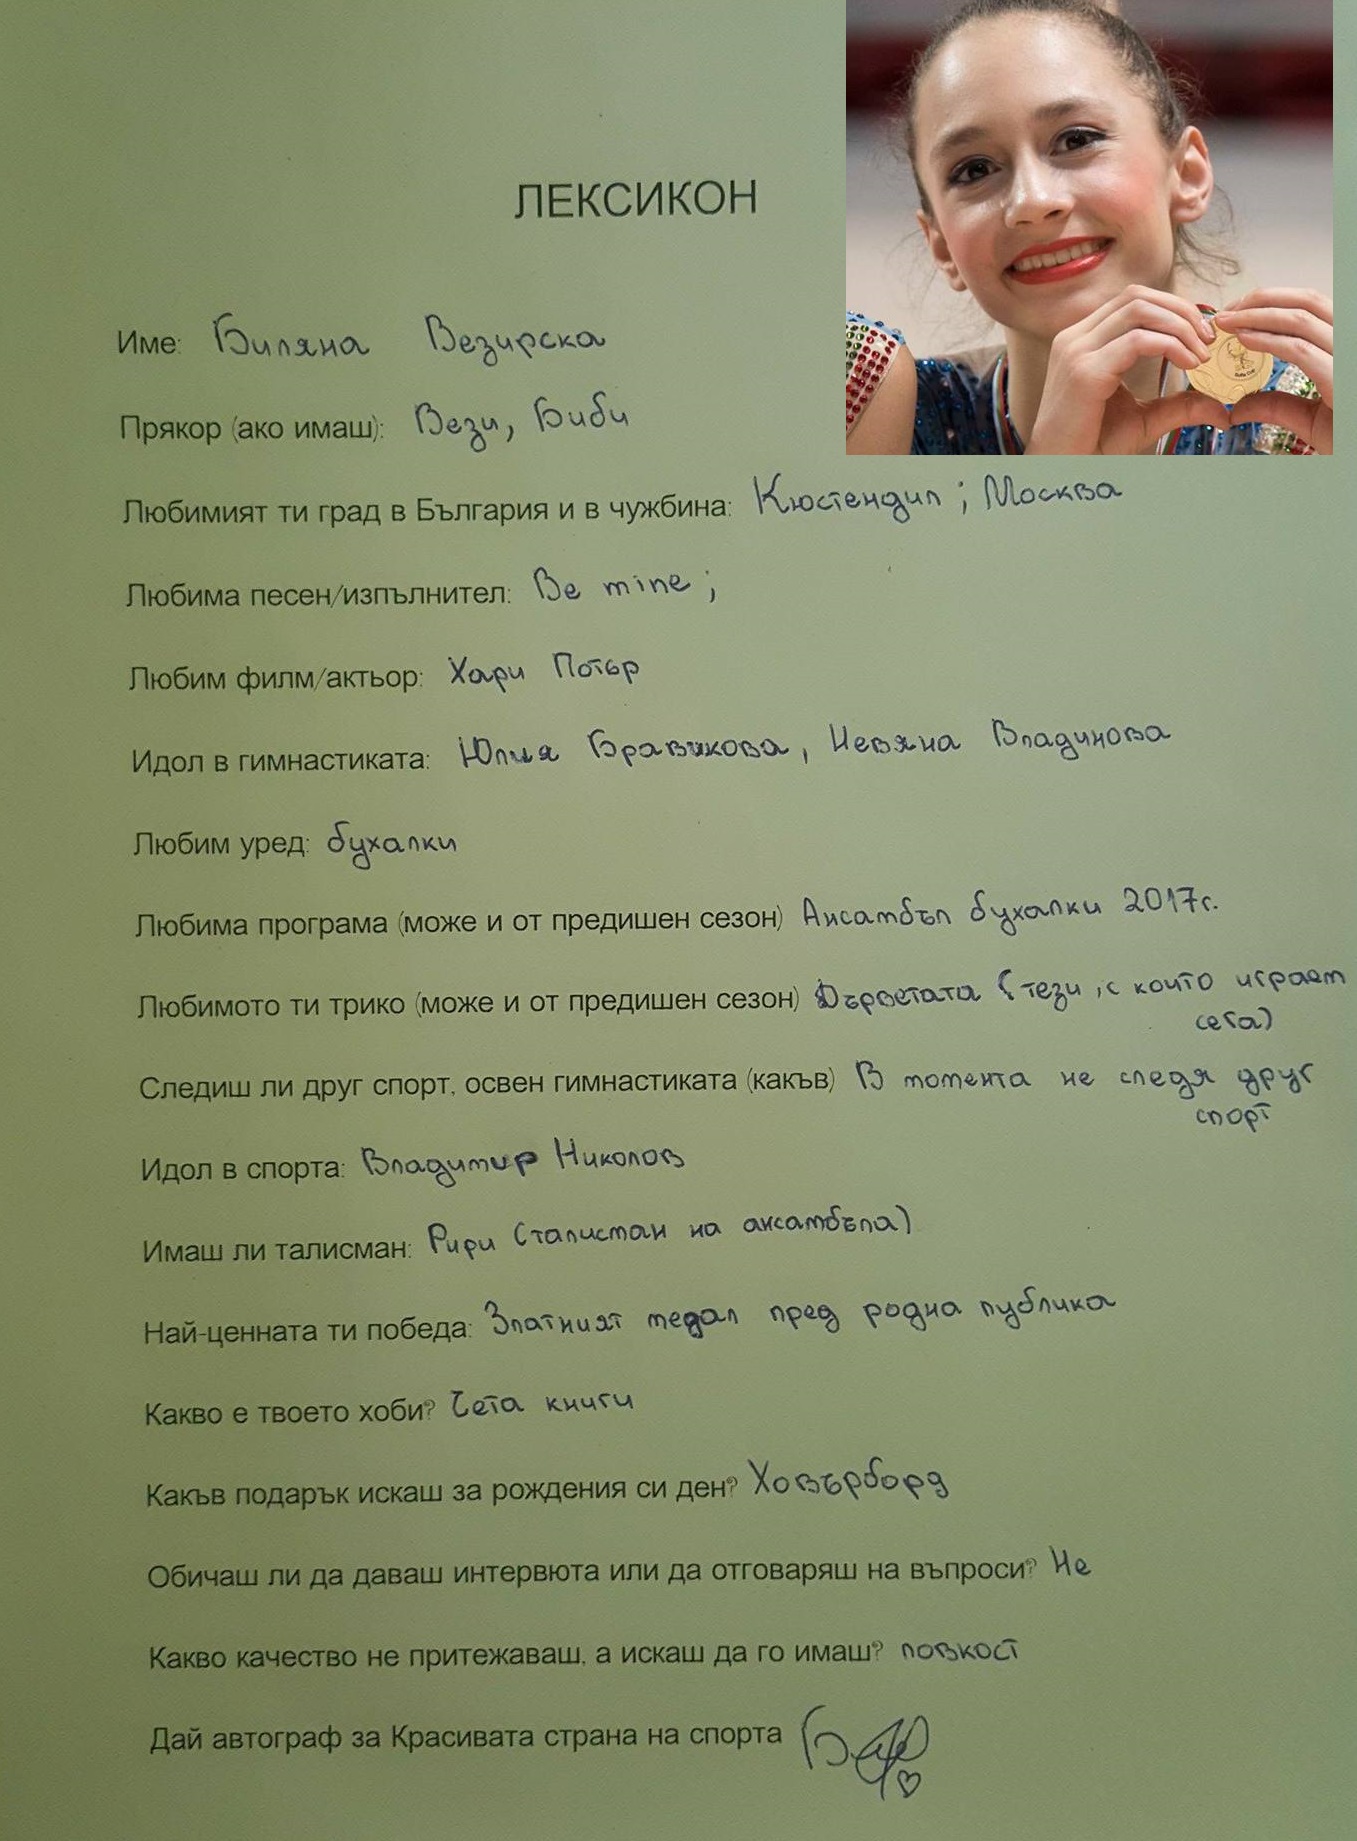 ЛЕКСИКОН
Име: Биляна Везирска
Прякор (ако имаш): Вези, Биби
Любимият ти град в България и в чужбина: Кюстендил ; Москва
Любима песен/изпълнител: Be mine ;
Любим филм/актьор: Хари Потър
Идол в гимнастиката: Юлия Бравикова, Невяна Владинова
Любим уред: бухалки
Любима програма (може и от предишен сезон) Ансамбъл бухалки 2017г.
Любимото ти трико (може и от предишен сезон) Дърветата (тези, с които играем
сега)
Следиш ли друг спорт, освен гимнастиката (какъв) В момента не следя друг
спорт
Идол в спорта: Владимир Николов
Имаш ли талисман: Рири (талисман на ансамбъла)
Най-ценната ти победа: Златният медал пред родна публика
Какво е твоето хоби? Чета книги
Какъв подарък искаш за рождения си ден? Ховърборд
Обичаш ли да даваш интервюта или да отговаряш на въпроси? Не
Какво качество не притежаваш, а искаш да го имаш? ловкост
Дай автограф за Красивата страна на спорта